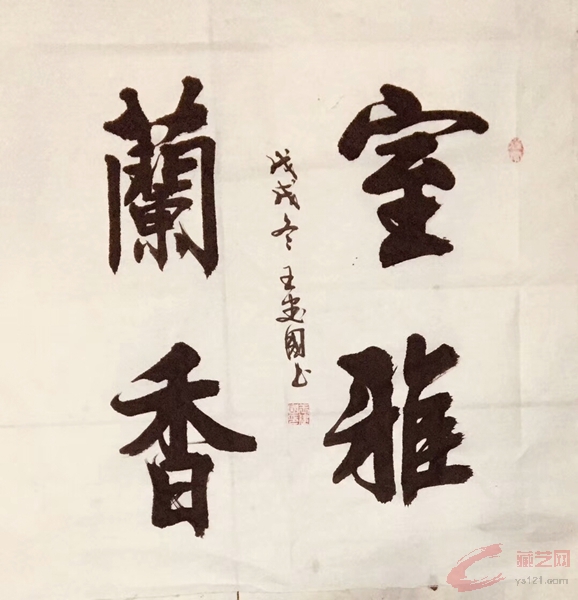 室雅
蘭香
戊戌冬王安國书
藏艺网
ys1211.com